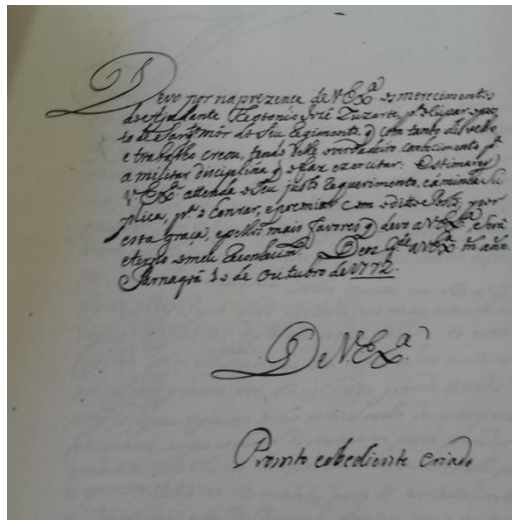 Devo por na prezença de V. Ex.ª os merecimentos
do Ajudante Theotonio José Zuzarte p.ª occupar o pos
to de Sarg.to mór do Seu Regimento, q com tanto disvello
e trabalho creou, tendo elle o verdadeiro conhecimento p.ª
a militar disciplina q o faz exercitar: Estimarey
V. Ex.ª attenda o Seu justo requerimento, e á minha Su
plica, p.ª o honrar, e premiar com o ditto Posto, e por
esta graça, e por mais favores q devo a V. Ex.ª Será
eterno o meu reconhecim.to Deos g.de a V. Ex.ª m. ann.
Parnagoá 10 de Outubro de 1772.
De V. Ex.ª
Promto e obediente Criado